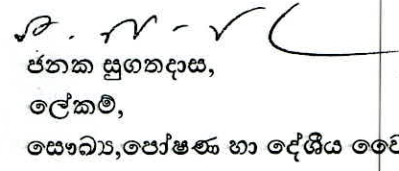 ජනක සුගතදාස,
ලේකම්,
සෞඛ්‍ය,පෝෂණ හා දේශීය වෛ